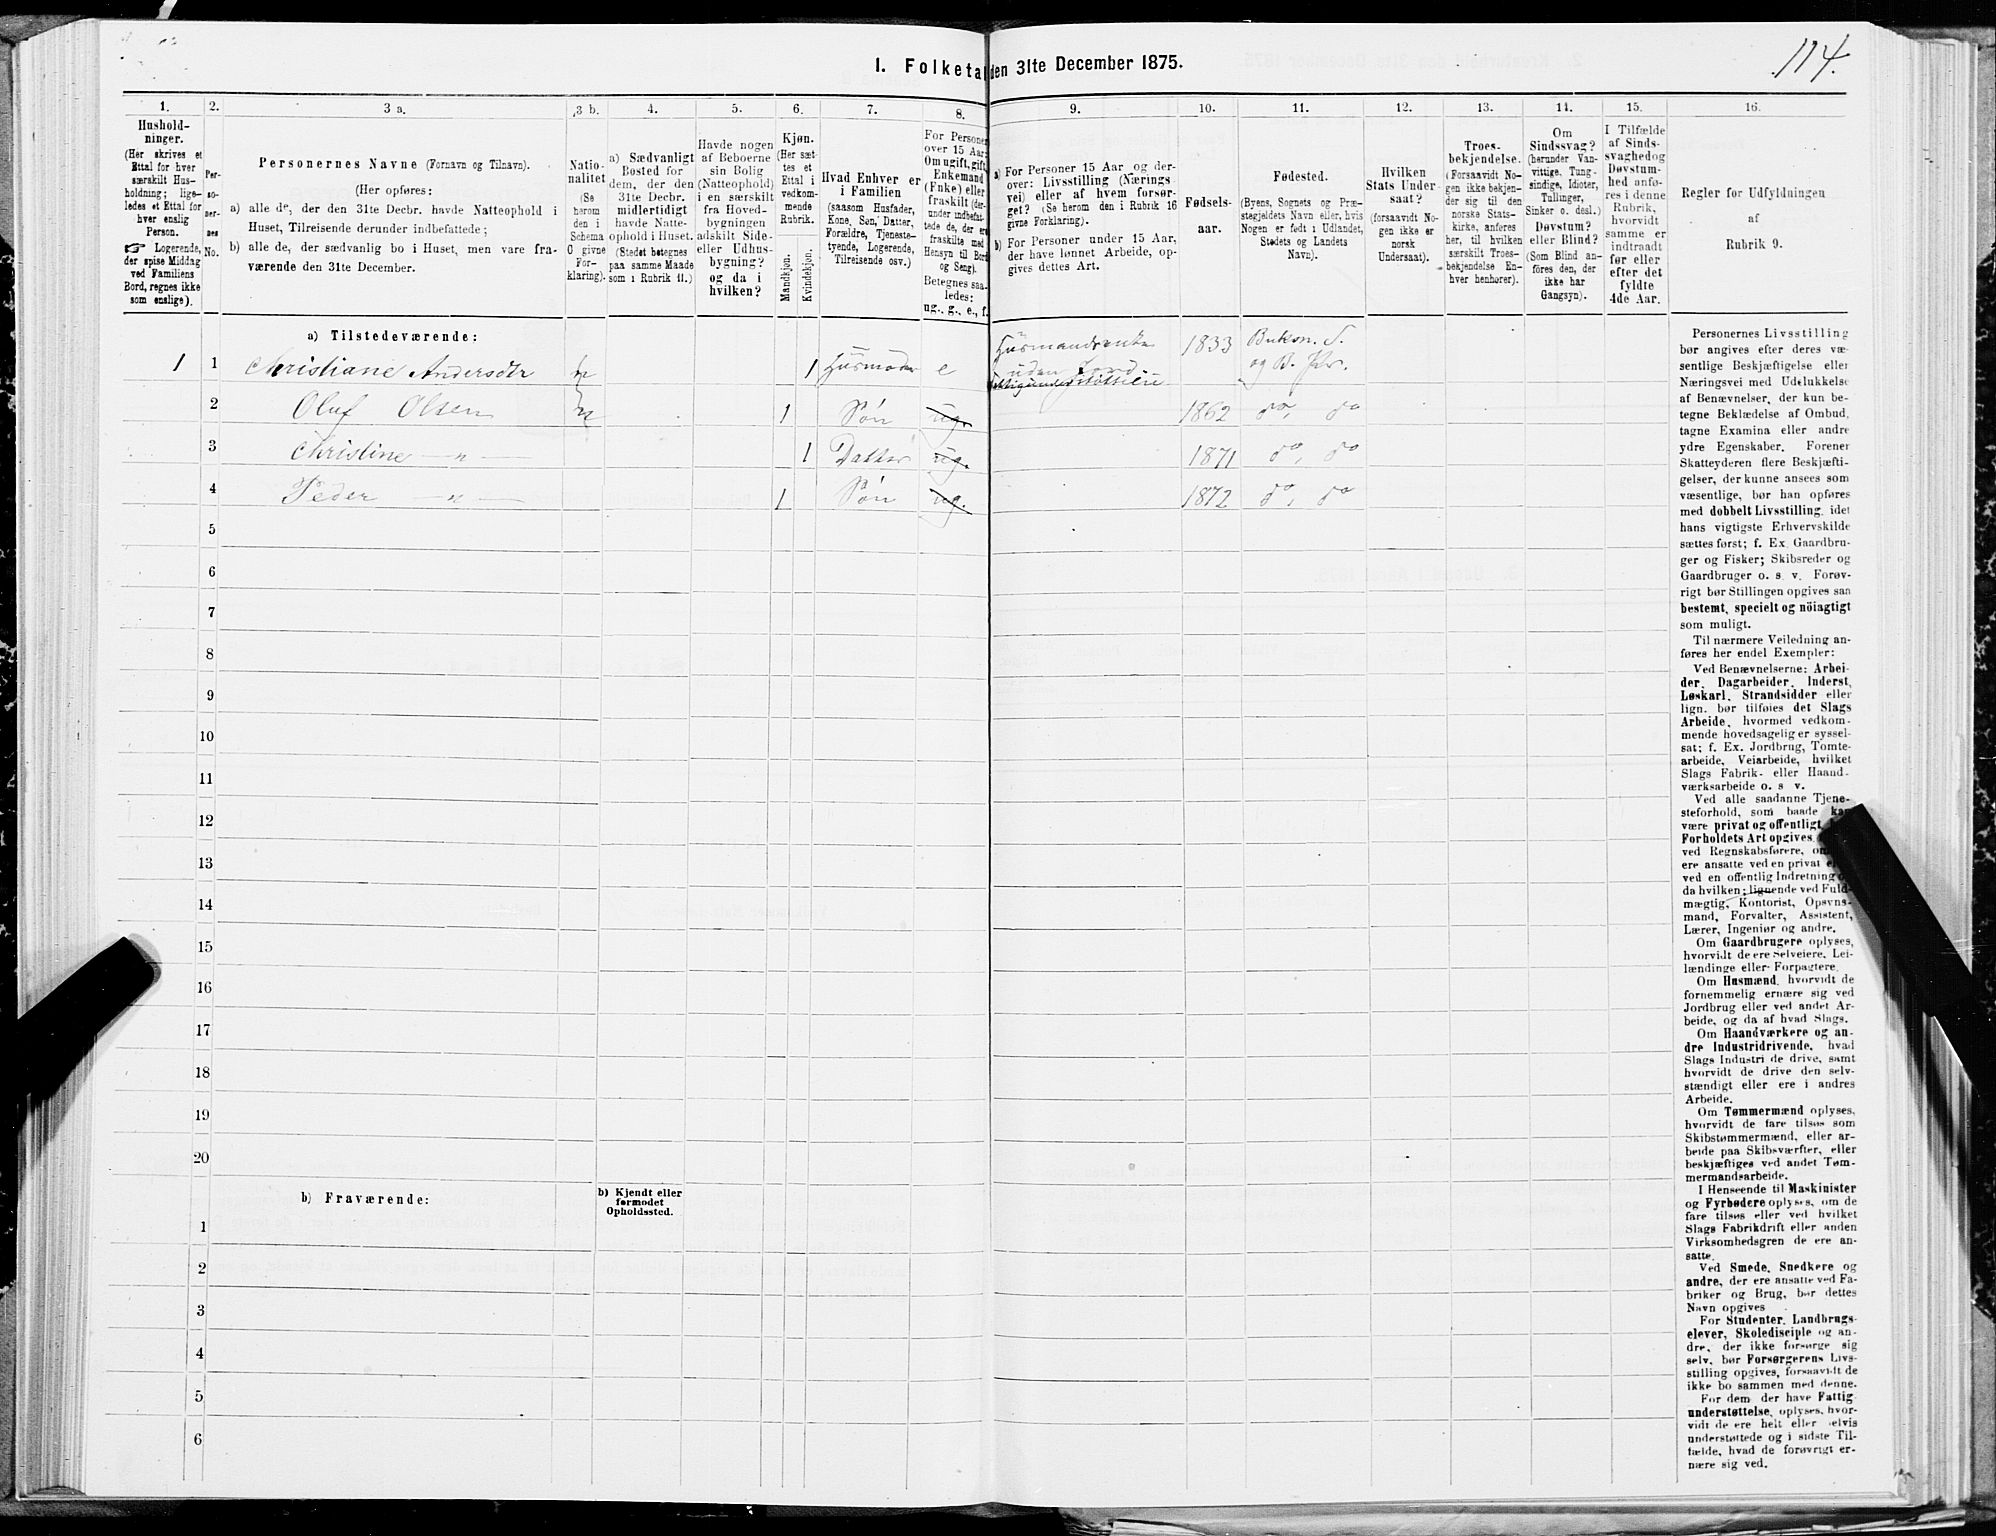 114.
1. Folketal den 31te December 1875.
1. 2. 3 a. 3 b. 4. 5. 6. 7. 8. 9. 10. 11. 12. 13. 14. 15. 16.
Hushold-
ninger.
(Her skrives et
Ettal for hver
særskilt Hus-
holdning; lige-
ledes et Ettal for
hver enslig
Person.
☞ Logerende,
der spise Middag
ved Familiens
Bord, regnes ikke
som enslige).
Per-
so-
ner-
nes
No.
Personernes Navne (Fornavn og Tilnavn).
(Her opføres:
a) alle de, der den 31te Decbr. havde Natteophold i
Huset, Tilreisende derunder indbefattede;
b) alle de, der sædvanlig bo i Huset, men vare fra-
værende den 31te December.
Natio-
nalitet
(Se
herom
den i
Schema
O givne
For-
klaring).
a) Sædvanligt
Bosted for
dem, der den
31te Decbr.
midlertidigt
havde Natte-
ophold i Huset.
(Stedet betegnes
paa samme Maade
som i Rubrik 11.)
Havde nogen
af Beboerne
sin Bolig
(Natteophold)
i en særskilt
fra Hoved-
bygningen
adskilt Side-
eller Udhus-
bygning?
og da i
hvilken?
Kjøn.
(Her sæt-
tes et
Ettal i
vedkom-
mende
Rubrik.
Mandkjøn.
Kvindekjøn.
Hvad Enhver er
i Familien
(saasom Husfader,
Kone, Søn, Datter,
Forældre, Tjeneste-
tyende, Logerende,
Tilreisende osv.).
For Personer
over 15 Aar:
Om ugift, gift,
Enkemand
(Enke) eller
fraskilt (der-
under indbefat-
tede de, der ere
fraskilte med
Hensyn til Bord
og Seng).
Betegnes saa-
ledes:
ug., g., e., f.
a) For Personer 15 Aar og der-
over: Livsstilling (Nærings-
vei) eller af hvem forsør-
get? (Se herom den i Rubrik 16
givne Forklaring).
b) For Personer under 15 Aar,
der have lønnet Arbeide, op-
gives dettes Art.
Fødsels-
aar.
Fødested.
(Byens, Sognets og Præ-
stegjeldets Navn eller, hvis
Nogen er født i Udlandet,
Stedets og Landets
Navn).
Hvilken
Stats Under-
saat?
(forsaavidt No-
gen ikke er
norsk
Undersaat).
Troes-
bekjendelse.
(Forsaavidt No-
gen ikke bekjen-
der sig til den
norske Stats-
kirke, anføres
her, til hvilken
særskilt Troes-
bekjendelse En-
hver henhører).
Om
Sindssvag?
(herunder Van-
vittige, Tung-
sindige, Idioter,
Tullinger,
Sinker o. desl.)
Døvstum?
eller Blind?
(Som Blind an-
føres den, der
ikke har
Gangsyn).
I Tilfælde
af Sinds-
svaghed og
Døvstum-
hed anfø-
res i denne
Rubrik,
hvorvidt
samme er
indtraadt
før eller
efter det
fyldte
4de Aar.
Regler for Udfyldningen
af
Rubrik 9.
a) Tilstedeværende:
1 1 Christiane Andersdtr n 1 Husmoder e Husmandsenke uden Jord Fattigunderstøttelse 1833 Buksn. S. og B. Pr.
2 Oluf Olsen n 1 Søn ug. 1862 do, do
3 Christine —"— 1 Datter ug. 1871 do, do
4 Peder —"— 1 Søn ug. 1872 do, do
5
6
7
8
9
10
11
12
13
14
15
16
17
18
19
20
b) Fraværende:
b) Kjendt eller
formodet
Opholdssted.
1
2
3
4
5
6
Personernes Livsstilling
bør angives efter deres væ-
sentlige Beskjæftigelse eller
Næringsvei med Udelukkelse
af Benævnelser, der kun be-
tegne Beklædelse af Ombud,
tagne Examina eller andre
ydre Egenskaber. Forener
Skatteyderen flere Beskjæfti-
gelser, der kunne ansees som
væsentlige, bør han opføres
med dobbelt Livsstilling, idet
hans vigtigste Erhvervskilde
sættes først; f. Ex. Gaardbru-
ger og Fisker; Skibsreder og
Gaardbruger o. s. v. Forøv-
rigt bør Stillingen opgives saa
bestemt, specielt og nöiagtigt
som muligt.
Til nærmere Veiledning an-
føres her endel Exempler:
Ved Benævnelserne: Arbei-
der, Dagarbeider, Inderst,
Løskarl, Strandsidder eller
lign. bør tilføies det Slags
Arbeide, hvormed vedkom-
mende hovedsagelig er syssel-
sat; f. Ex. Jordbrug, Tomte-
arbeide, Veiarbeide, hvilket
Slags Fabrik- eller Haand-
værksarbeide o. s. v.
Ved alle saadanne Tjene-
steforhold, som baade kan
være privat og offentligt,
Forholdets Art opgives,
ved Regnskabsførere, om
ere ansatte ved en privat
ved en offentlig Indretning
da hvilken; lignende ved Fuld-
mægtig, Kontorist, Opsyns-
mand, Forvalter, Assistent,
Lærer, Ingeniør og andre.
Om Gaardbrugere oplyses,
hvorvidt de ere Selveiere, Lei-
lændinge eller Forpagtere.
Om Husmænd, hvorvidt de
fornemmelig ernære sig ved
Jordbrug eller ved andet Ar-
beide, og da af hvad Slags.
Om Haandværkere og an-
dre Industridrivende, hvad
Slags Industri de drive, samt
hvorvidt de drive den selv-
stændigt eller ere i andres
Arbeide.
Om Tømmermænd oplyses,
hvorvidt de fare tilsøs som
Skibstømmermænd, eller ar-
beide paa Skibsværfter, eller
beskjæftiges ved andet Tøm-
mermandsarbeide.
I Henseende til Maskinister
og Fyrbødere oplyses, om de
fare tilsøs eller ved hvilket
Slags Fabrikdrift eller anden
Virksomhedsgren de ere an-
satte.
Ved Smede, Snedkere og
andre, der ere ansatte ved Fa-
briker og Brug, bør dettes
Navn opgives
For Studenter, Landbrugs-
elever, Skoledisciple og an-
dre, der ikke forsørge sig
selv, bør Forsørgerens Livs-
stilling opgives, forsaavidt de
ikke bo sammen med denne.
For dem, der have Fattig-
understøttelse, oplyses, hvor-
vidt de ere helt eller delvis
understøttede og i sidste Til-
fælde, hvad de forøvrigt er-
nære sig ved.